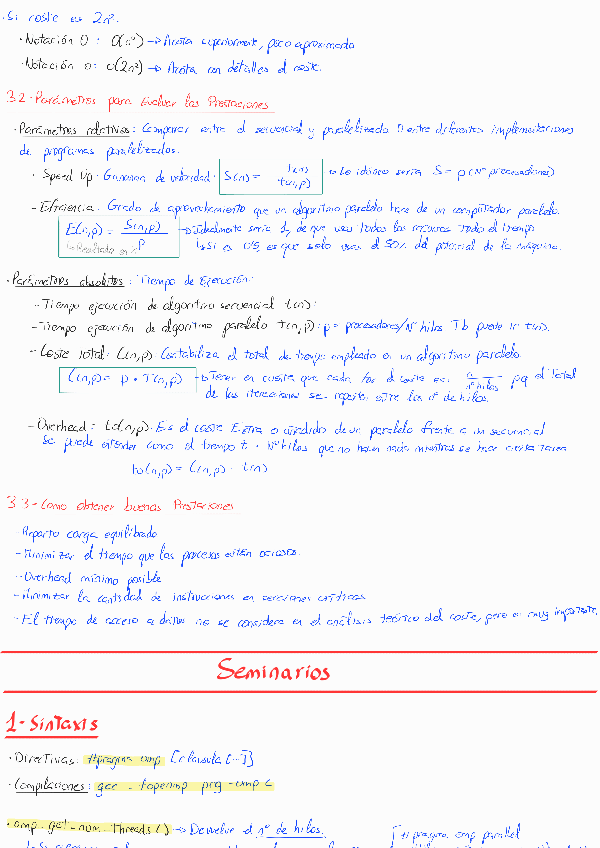 · Si coste es 2n².
· Notación O : O(n²) → Acota superiormente, poco aproximado
· Notación o: o(2n²) → Acota con detalles el coste.
3.2 - Parámetros para Evaluar las Prestaciones
· Parámetros relativos: Comparar entre el secuencial y paralelizado O entre diferentes implementaciones
de programas paralelizados.
· Speed Up: Ganancia de velocidad. S(n) = t(n) / t(n,p) → Lo idóneo sería S = p (nº procesadores)
- Eficiencia: Grado de aprovechamiento que un algoritmo paralelo hace de un computador paralelo.
E(n,p) = S(n,p) / p → Idealmente sería 1, de que usa todos los recursos todo el tiempo
↳ Resultado en % ↳ Si es 0'5, es que solo usas el 50% del potencial de la máquina.
· Parámetros absolutos: Tiempo de Ejecución:
- Tiempo ejecución de algoritmo secuencial t(n).
- Tiempo ejecución de algoritmo paralelo t(n,p): p = procesadores/nº hilos Tb puede ir t(n).
- Coste Total: C(n,p) Contabiliza el total de tiempo empleado en un algoritmo paralelo.
C(n,p) = p · T(n,p) → Tener en cuenta que cada for el coste es: n / nº hilos pq el total
de las iteraciones se reparte entre los nº de hilos.
- Overhead: to(n,p). Es el coste Extra o añadido de un paralelo frente a un secuencial
Se puede entender como el tiempo t · nº hilos que no hacen nada mientras se hace cierta tarea
to(n,p) = C(n,p) - t(n)
3.3 - Como obtener buenas Prestaciones
- Reparto carga equilibrado
- Minimizar el tiempo que los procesos estén ociosos.
- Overhead mínimo posible
- Minimizar la cantidad de instrucciones en secciones críticas
- El tiempo de acceso a datos no se considera en el análisis teórico del coste, pero es muy importante.
Seminarios
1 - Sintaxis
· Directivas: #pragma omp [clausula [...]]
· Compilaciones: gcc - fopenmp prg-omp c
· omp_get_num_Threads() → Devuelve el nº de hilos. [#pragma omp parallel